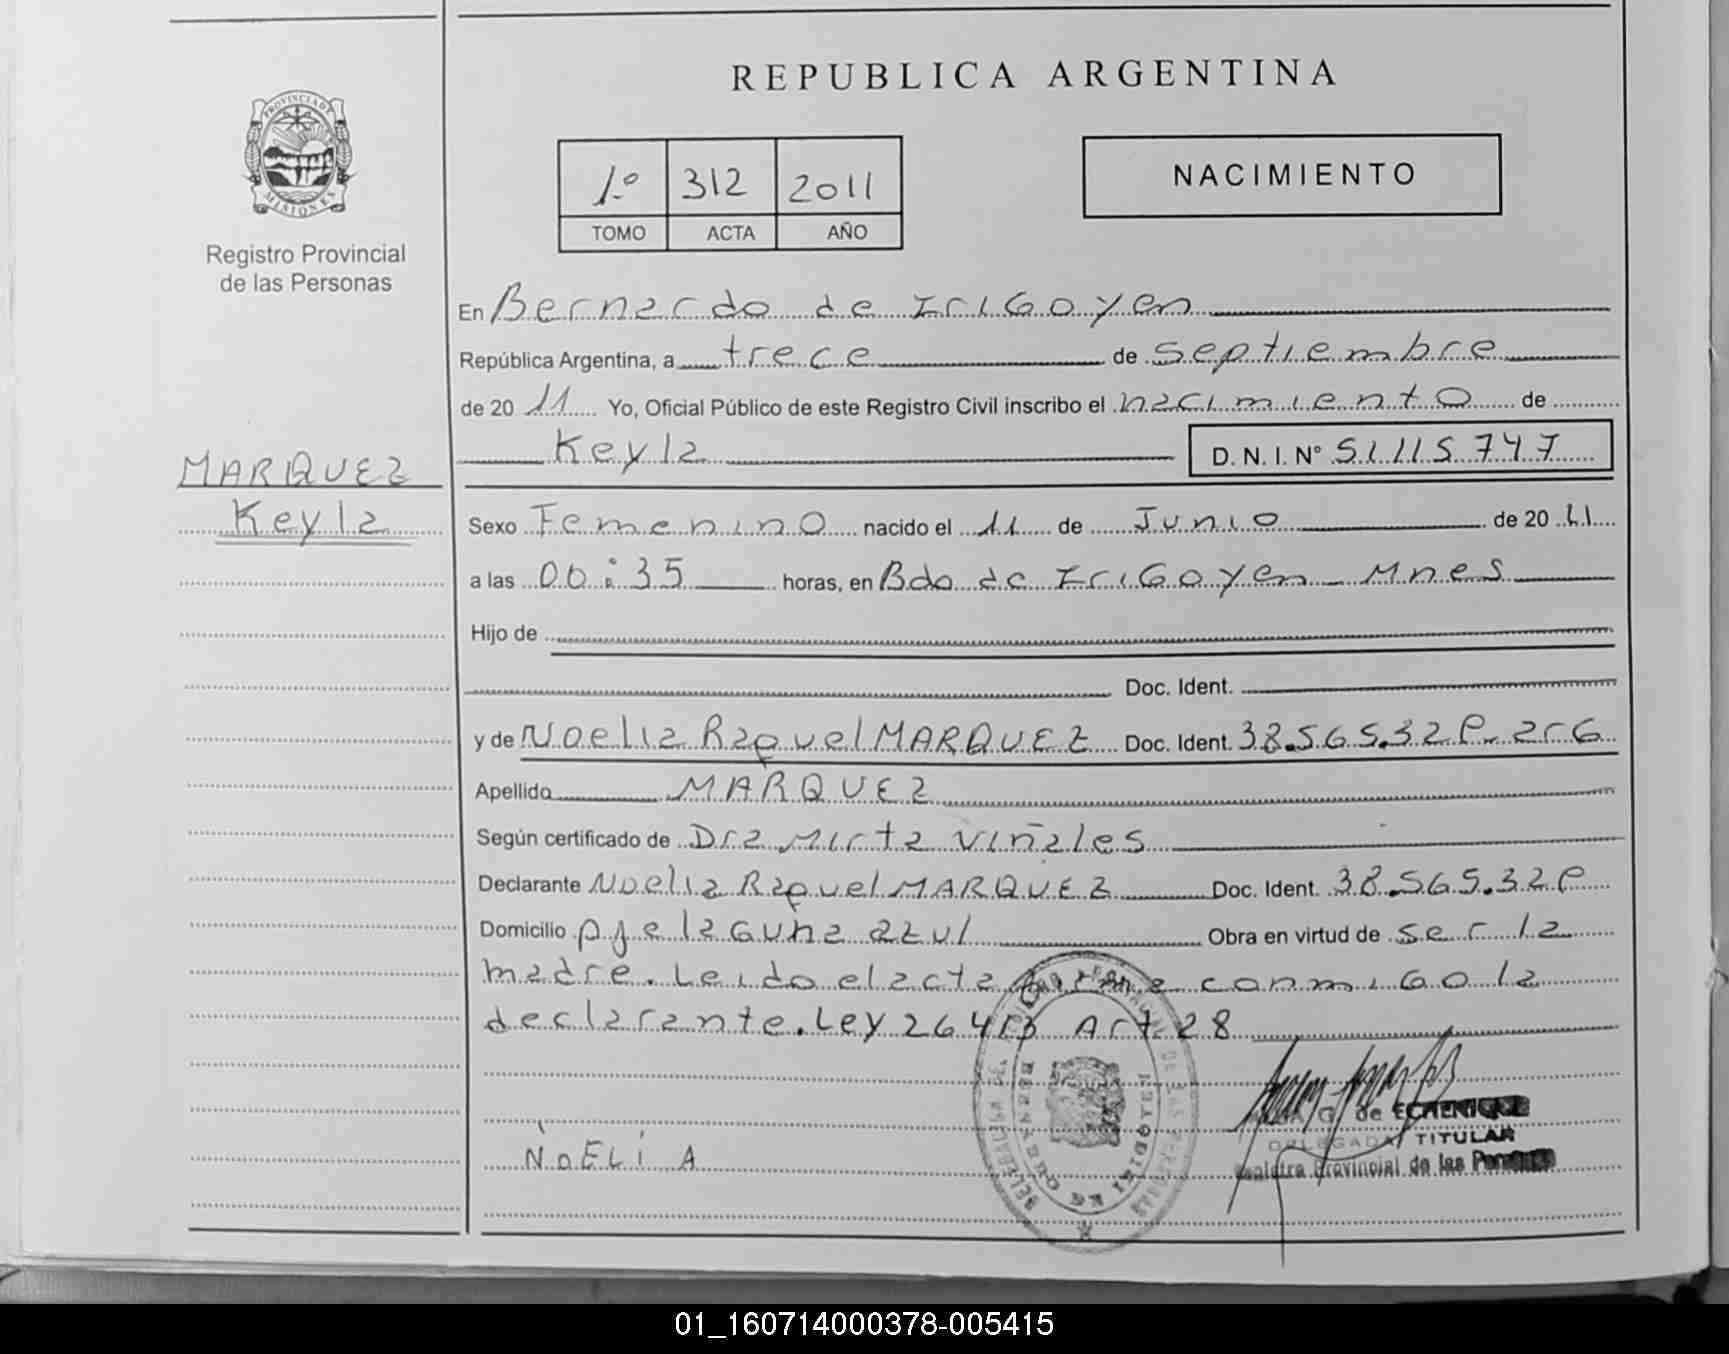 REPUBLICA ARGENTINA
PROVINCIA DE
MISIONES
Registro Provincial
de las Personas
1º 312 2011
TOMO ACTA AÑO
NACIMIENTO
En Bernardo de IriGoyen
República Argentina, a trece de septiembre
de 20 11 Yo, Oficial Público de este Registro Civil inscribo el nacimiento de
Keyla D. N. I. Nº 51.115.747
MARQUEZ
Keyla
Sexo Femenino nacido el 11 de Junio de 20 11
a las 00:35 horas, en Bdo de IriGoyen - Mnes
Hijo de
Doc. Ident.
y de Noelia Raquel MARQUEZ Doc. Ident. 38.565.32 arG
Apellido MARQUEZ
Según certificado de Dra Mirta Viñales
Declarante Noelia Raquel MARQUEZ Doc. Ident. 38.565.32
Domicilio pje laGuna azul Obra en virtud de ser la
madre. Leido el acta firma conmiGo la
declarante. Ley 26413 Art 28
G. de ECHENIQUE
DELEGADA TITULAR
Registro Provincial de las Personas
NOELIA
01_160714000378-005415